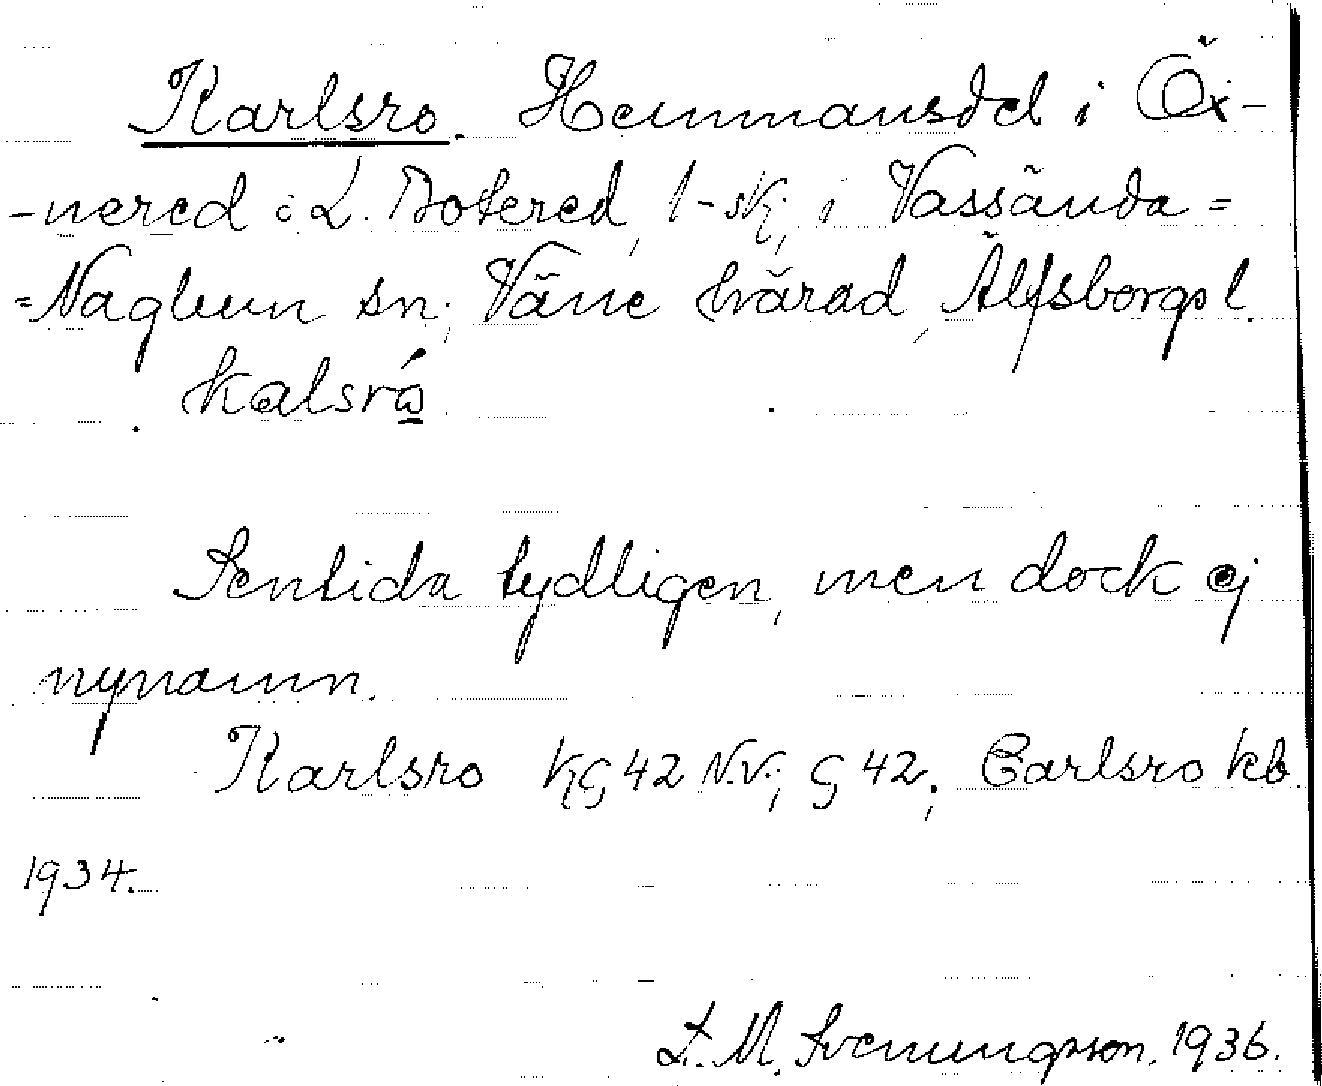 Karlsro. Hemmansdel i Öx-
-nered o. L. Botered, 1-sk; i Vassända=
=Naglum sn; Väne härad, Älfsborgs l.
kalsró
Sentida tydligen, men dock ej
nynamn.
Karlsro KG 42 N.V.; G 42; Carlsro kb.
1934.
L. M. Svenungsson. 1936.